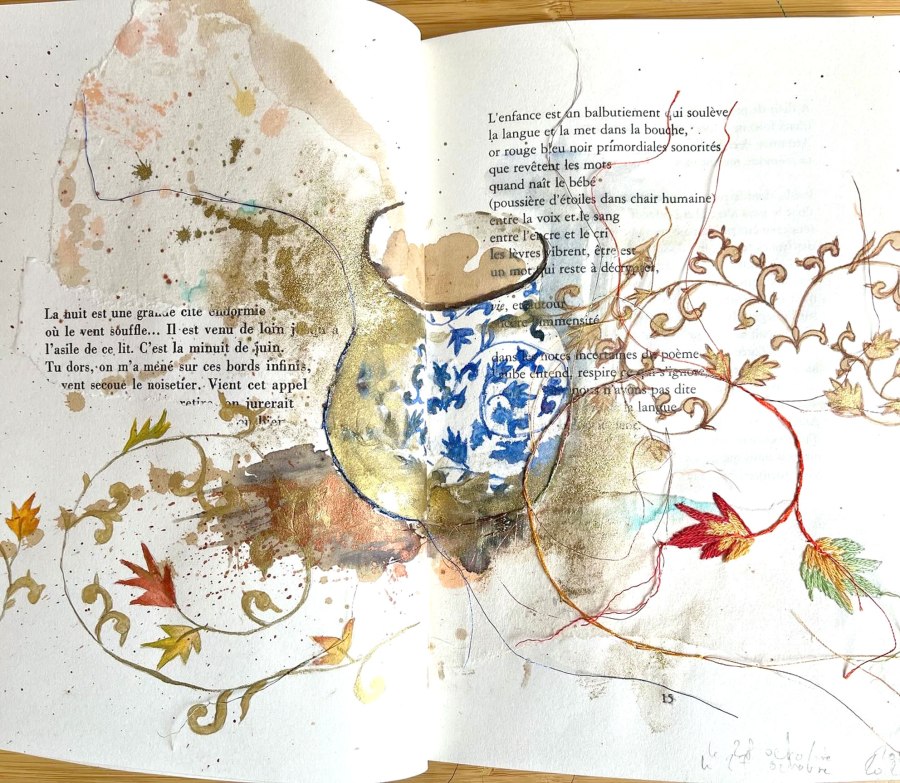 La nuit est une grande cité endormie
où le vent souffle... Il est venu de loin jusqu'à
l'asile de ce lit. C'est la minuit de juin.
Tu dors, on m'a mené sur ces bords infinis,
vent secoue le noisetier. Vient cet appel
retire, on jurerait
L'enfance est un balbutiement qui soulève
la langue et la met dans la bouche,
or rouge bleu noir primordiales sonorités
que revêtent les mots
quand naît le bébé
(poussière d'étoiles dans chair humaine)
entre la voix et le sang
entre l'encre et le cri
les lèvres vibrent, être est
un mot qui reste à décrypter,
vie, et autour
encore l'immensité
dans les notes incertaines du poème
l'aube entend, respire ce qui s'ignore,
nous n'avons pas dite
la langue
15